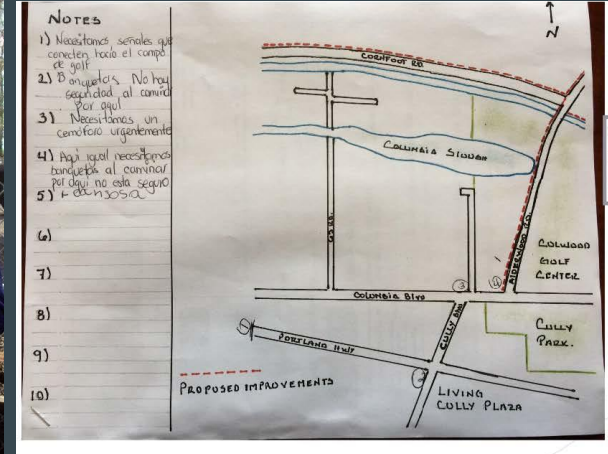 NOTES
1) Necesitamos señales que
conecten hacia el campo
de golf
2) Banquetas No hay
seguridad al caminar
por aqui
3) Necesitamos un
cemóforo urgentemente
4) Aqui igual necesitamos
banquetas al caminar
por daqui no esta seguro
5)
6)
7)
8)
9)
10)
N
CORNFOOT RD.
COLUMBIA SLOUGH
63 RD.
ALDERWOOD RD.
COLWOOD
GOLF
CENTER
3
4
COLUMBIA BLVD
1
PORTLAND HWY
CULLY BLVD
CULLY
PARK.
2
PROPOSED IMPROVEMENTS
LIVING
CULLY PLAZA